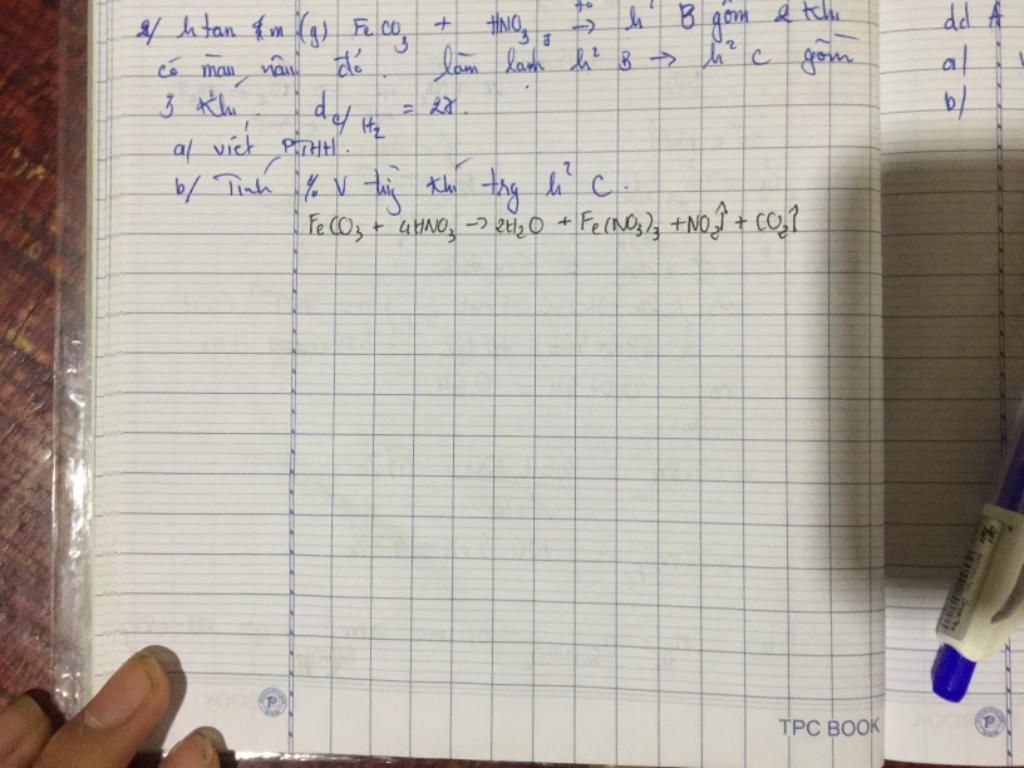 2/ h tan m (g) FeCO3 + HNO3 đ t° → h² B gồm 2 khí
có màu nâu đỏ. làm lạnh h² B → h² C gồm
3 khí, d C/H2 =
a/ viết PTHH.
b/ Tính % V từg khí trg h² C.
FeCO3 + 4HNO3 → 2H2O + Fe(NO3)3 + NO2↑ + CO2↑
TPC BOOK
dd A
a/
b/